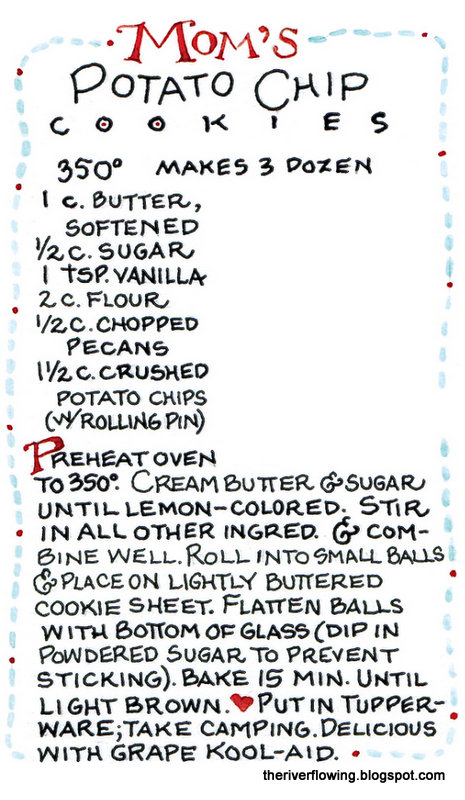 MOM'S
POTATO CHIP
COOKIES
350° MAKES 3 DOZEN
1 C. BUTTER,
SOFTENED
1/2 C. SUGAR
1 TSP. VANILLA
2 C. FLOUR
1/2 C. CHOPPED
PECANS
1 1/2 C. CRUSHED
POTATO CHIPS
(W/ROLLING PIN)
PREHEAT OVEN
TO 350°. CREAM BUTTER & SUGAR
UNTIL LEMON-COLORED. STIR
IN ALL OTHER INGRED. & COM-
BINE WELL. ROLL INTO SMALL BALLS
& PLACE ON LIGHTLY BUTTERED
COOKIE SHEET. FLATTEN BALLS
WITH BOTTOM OF GLASS (DIP IN
POWDERED SUGAR TO PREVENT
STICKING). BAKE 15 MIN. UNTIL
LIGHT BROWN. ♥ PUT IN TUPPER-
WARE; TAKE CAMPING. DELICIOUS
WITH GRAPE KOOL-AID.
theriverflowing.blogspot.com